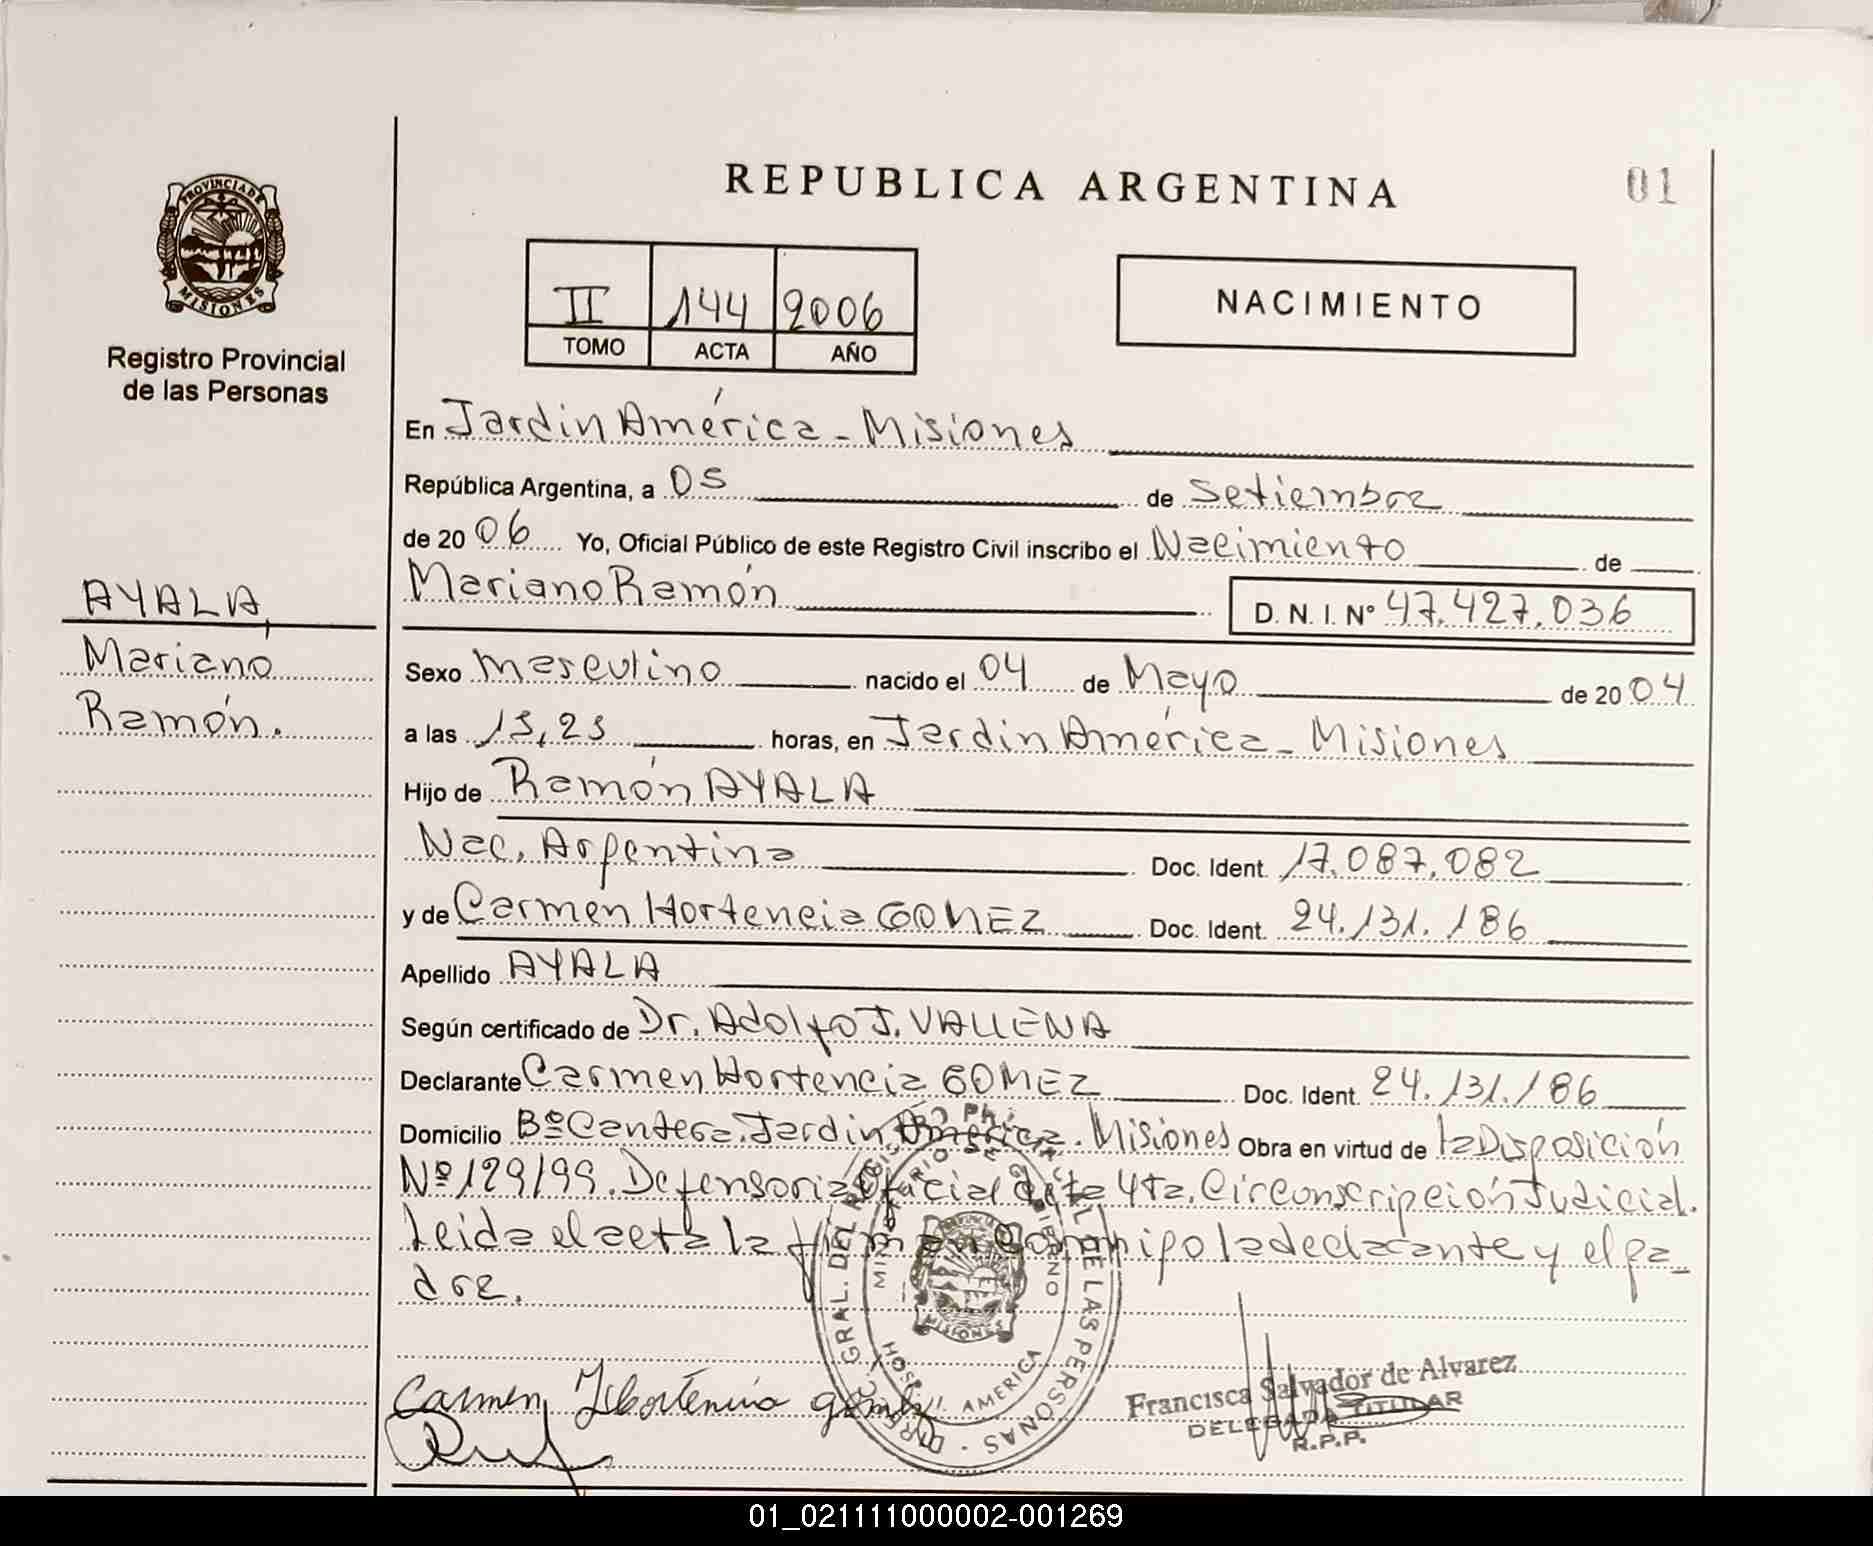 REPUBLICA ARGENTINA
01
PROVINCIA DE
MISIONES
Registro Provincial
de las Personas
II 144 2006
TOMO ACTA AÑO
NACIMIENTO
En Jardín América - Misiones
República Argentina, a 05 de Setiembre
de 2006 Yo, Oficial Público de este Registro Civil inscribo el Nacimiento de
Mariano Ramón D. N. I. Nº 47.427.036
AYALA,
Mariano
Ramón.
Sexo Masculino nacido el 04 de Mayo de 2004
a las 15,25 horas, en Jardin América - Misiones
Hijo de Ramón AYALA
Nac. Argentina Doc. Ident. 17.087.082
y de Carmen Hortencia GOMEZ Doc. Ident. 24.131.186
Apellido AYALA
Según certificado de Dr. Adolfo J. VALLENA
Declarante Carmen Hortencia GOMEZ Doc. Ident. 24.131.186
Domicilio Bº Cantera. Jardin América. Misiones Obra en virtud de la Disposición
Nº 129/99. Defensoria Oficial de la 4ta. Circonscripción Judicial.
Leida el acta la firman conmigo la declarante y el pa-
dre.
DIREC. GRAL. DEL DE LAS PERSONAS
MINISTERIO DE GOBIERNO
MISIONES
HOSP. J. AMERICA
Carmen Hortencia gomez
Francisca Salvador de Alvarez
DELEGADA TITULAR
R.P.P.
01_021111000002-001269